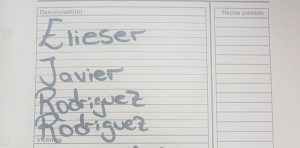 Denunciado(s)
Hecho punible
Elieser
Javier
Rodriguez
Rodriguez